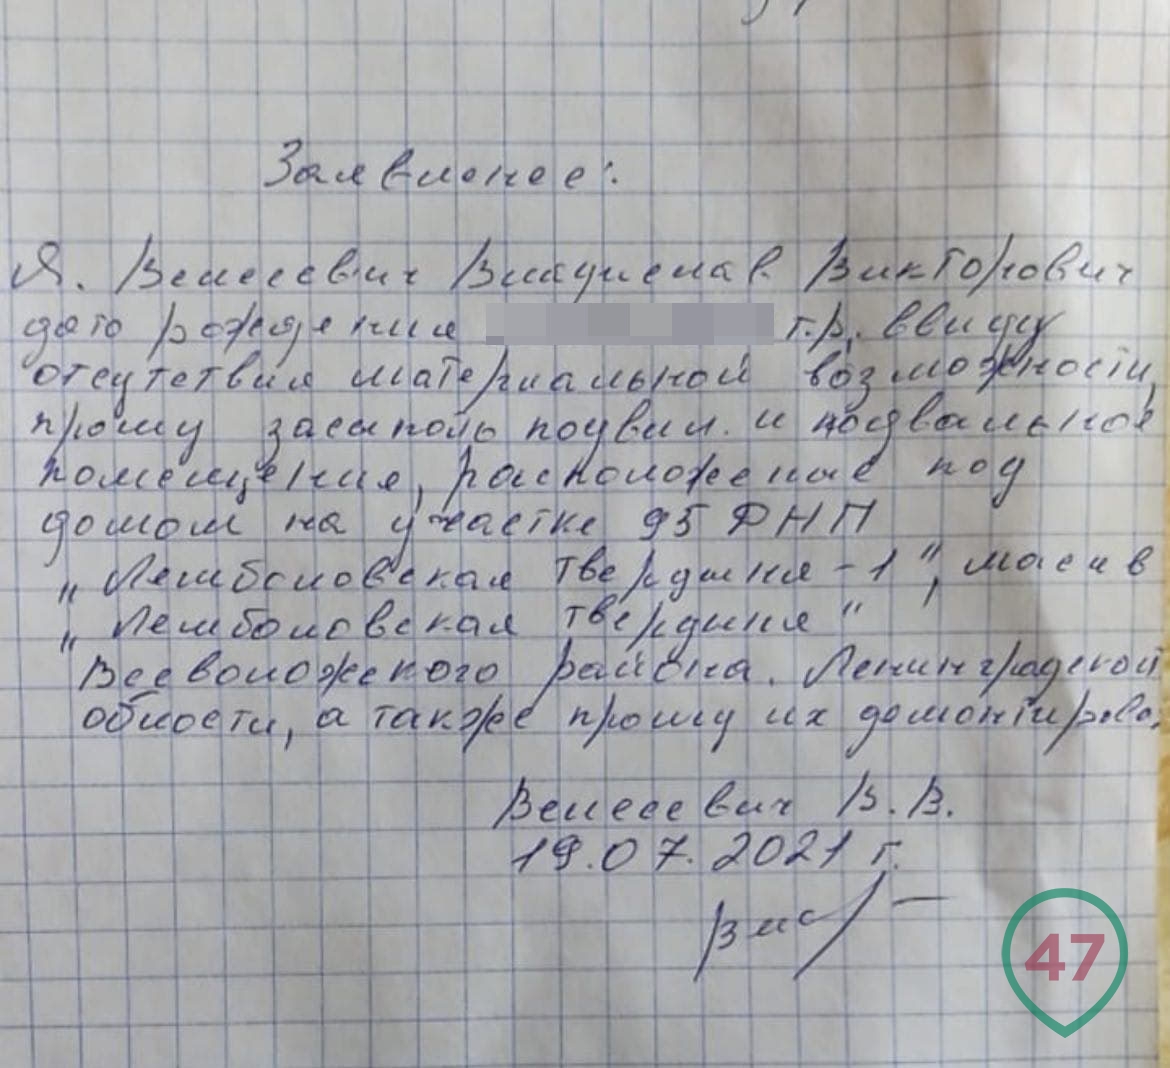 Заявление:
Я. Велесевич Владислав Викторович
дата рождения г.р. ввиду
отсутствия материальной возможности,
прошу засыпать подвал. и подвальное
помещения, расположеные под
домом на участке 95 ФНП
„Лемболовская твердыня-1", масив
„Лемболовская твердыня"
Всеволожского района. Ленинградской
области, а также прошу их
Велесевич В.В.
19.07.2021 г.
47